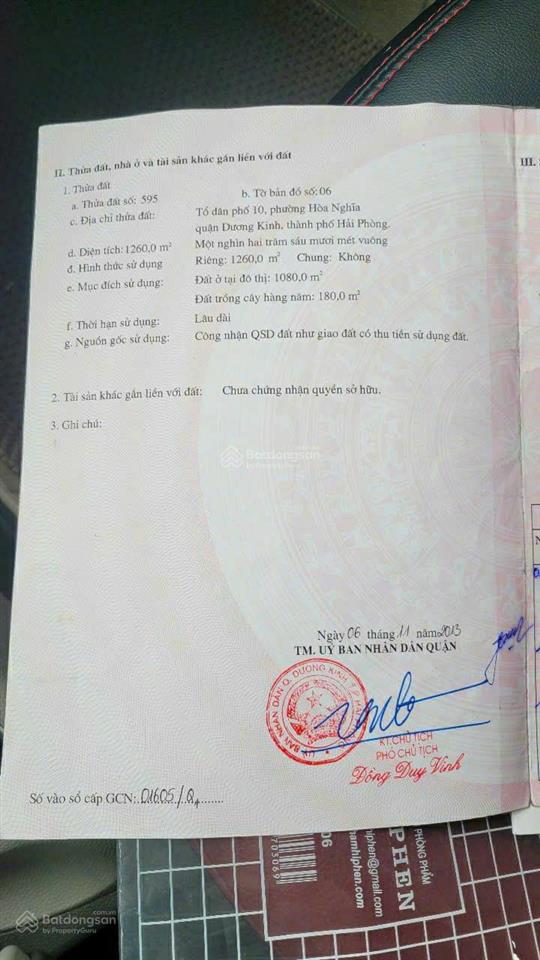 II. Thửa đất, nhà ở và tài sản khác gắn liền với đất
1. Thửa đất
a. Thửa đất số: 595
b. Tờ bản đồ số: 06
c. Địa chỉ thửa đất:
Tổ dân phố 10, phường Hòa Nghĩa
quận Dương Kinh, thành phố Hải Phòng.
d. Diện tích: 1260,0 m²
Một nghìn hai trăm sáu mươi mét vuông
đ. Hình thức sử dụng
Riêng: 1260,0 m² Chung: Không
e. Mục đích sử dụng:
Đất ở tại đô thị: 1080,0 m²
Đất trồng cây hàng năm: 180,0 m²
f. Thời hạn sử dụng:
Lâu dài
g. Nguồn gốc sử dụng:
Công nhận QSD đất như giao đất có thu tiền sử dụng đất.
2. Tài sản khác gắn liền với đất:
Chưa chứng nhận quyền sở hữu.
3. Ghi chú:
III.
Batdongsan
by PropertyGuru
Ngày 06 tháng 11 năm 2013
TM. UỶ BAN NHÂN DÂN QUẬN
ỦY BAN NHÂN DÂN Q. DƯƠNG KINH
KT.CHỦ TỊCH
PHÓ CHỦ TỊCH
Đồng Duy Vinh
Số vào sổ cấp GCN: 01605/Q
PHÒNG PHẨM
PHEN
hiphen@gmail.com
703069
06
Batdongsan
.com.vn
by PropertyGuru